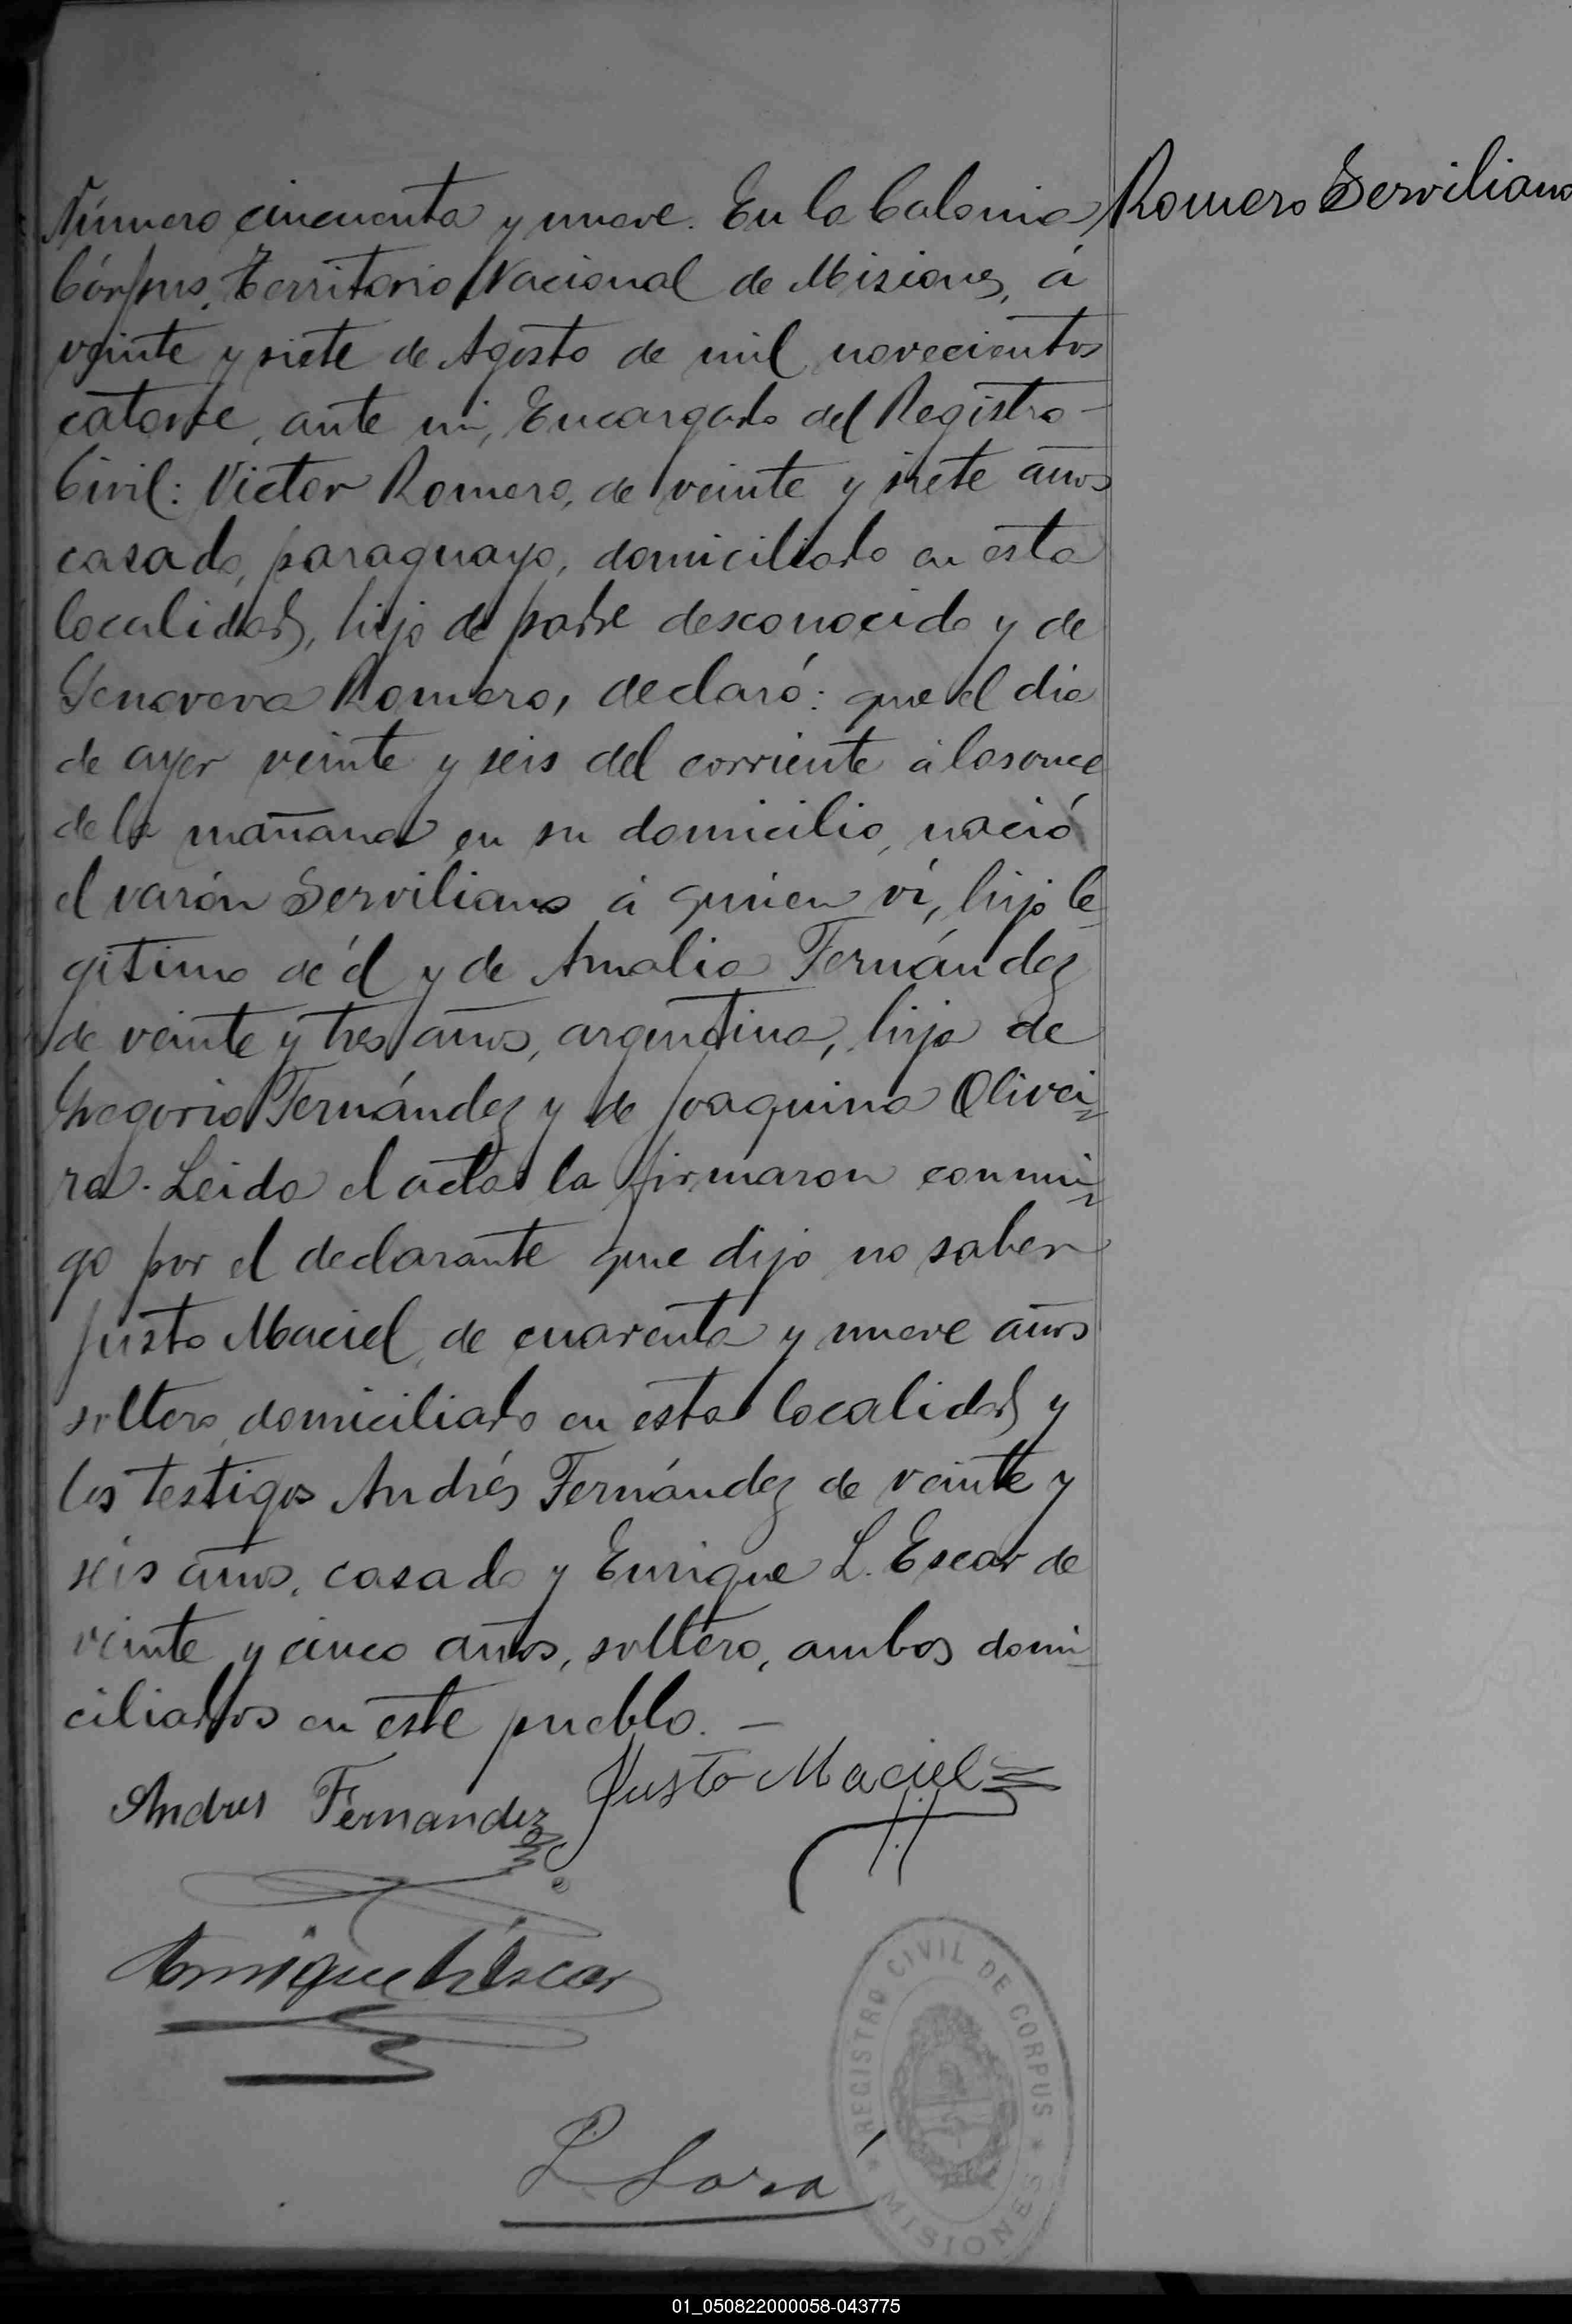 Número cincuenta y nueve. En la Colonia
Romero Serviliano
Córpus, Territorio Nacional de Misiones, á
veinte y siete de Agosto de mil novecientos
catorce, ante mi, Encargado del Registro
Civil: Victor Romero, de veinte y siete años
casado, paraguayo, domiciliado en esta
localidad, hijo de padre desconocido y de
Genoveva Romero, declaró: que el dia
de ayer veinte y seis del corriente á las once
de la mañana en su domicilio, nació
el varón Serviliano á quien ví, hijo le-
gitimo de él y de Amalia Fernández
de veinte y tres años, argentina, hija de
Gregorio Fernández y de Joaquina Olivei=
ra. Leida el acta la firmaron conmi=
go por el declarante que dijo no saber
Justo Maciel, de cuarenta y nueve años
soltero, domiciliado en esta localidad y
los testigos Andrés Fernández de veinte y
seis años, casado y Enrique L. Escar de
veinte y cinco años, soltero, ambos domi-
ciliados en este pueblo. —
Andres Fernandez Justo Maciel
Enrique L Escar
REGISTRO CIVIL DE CORPUS
MISIONES
01_050822000058-043775